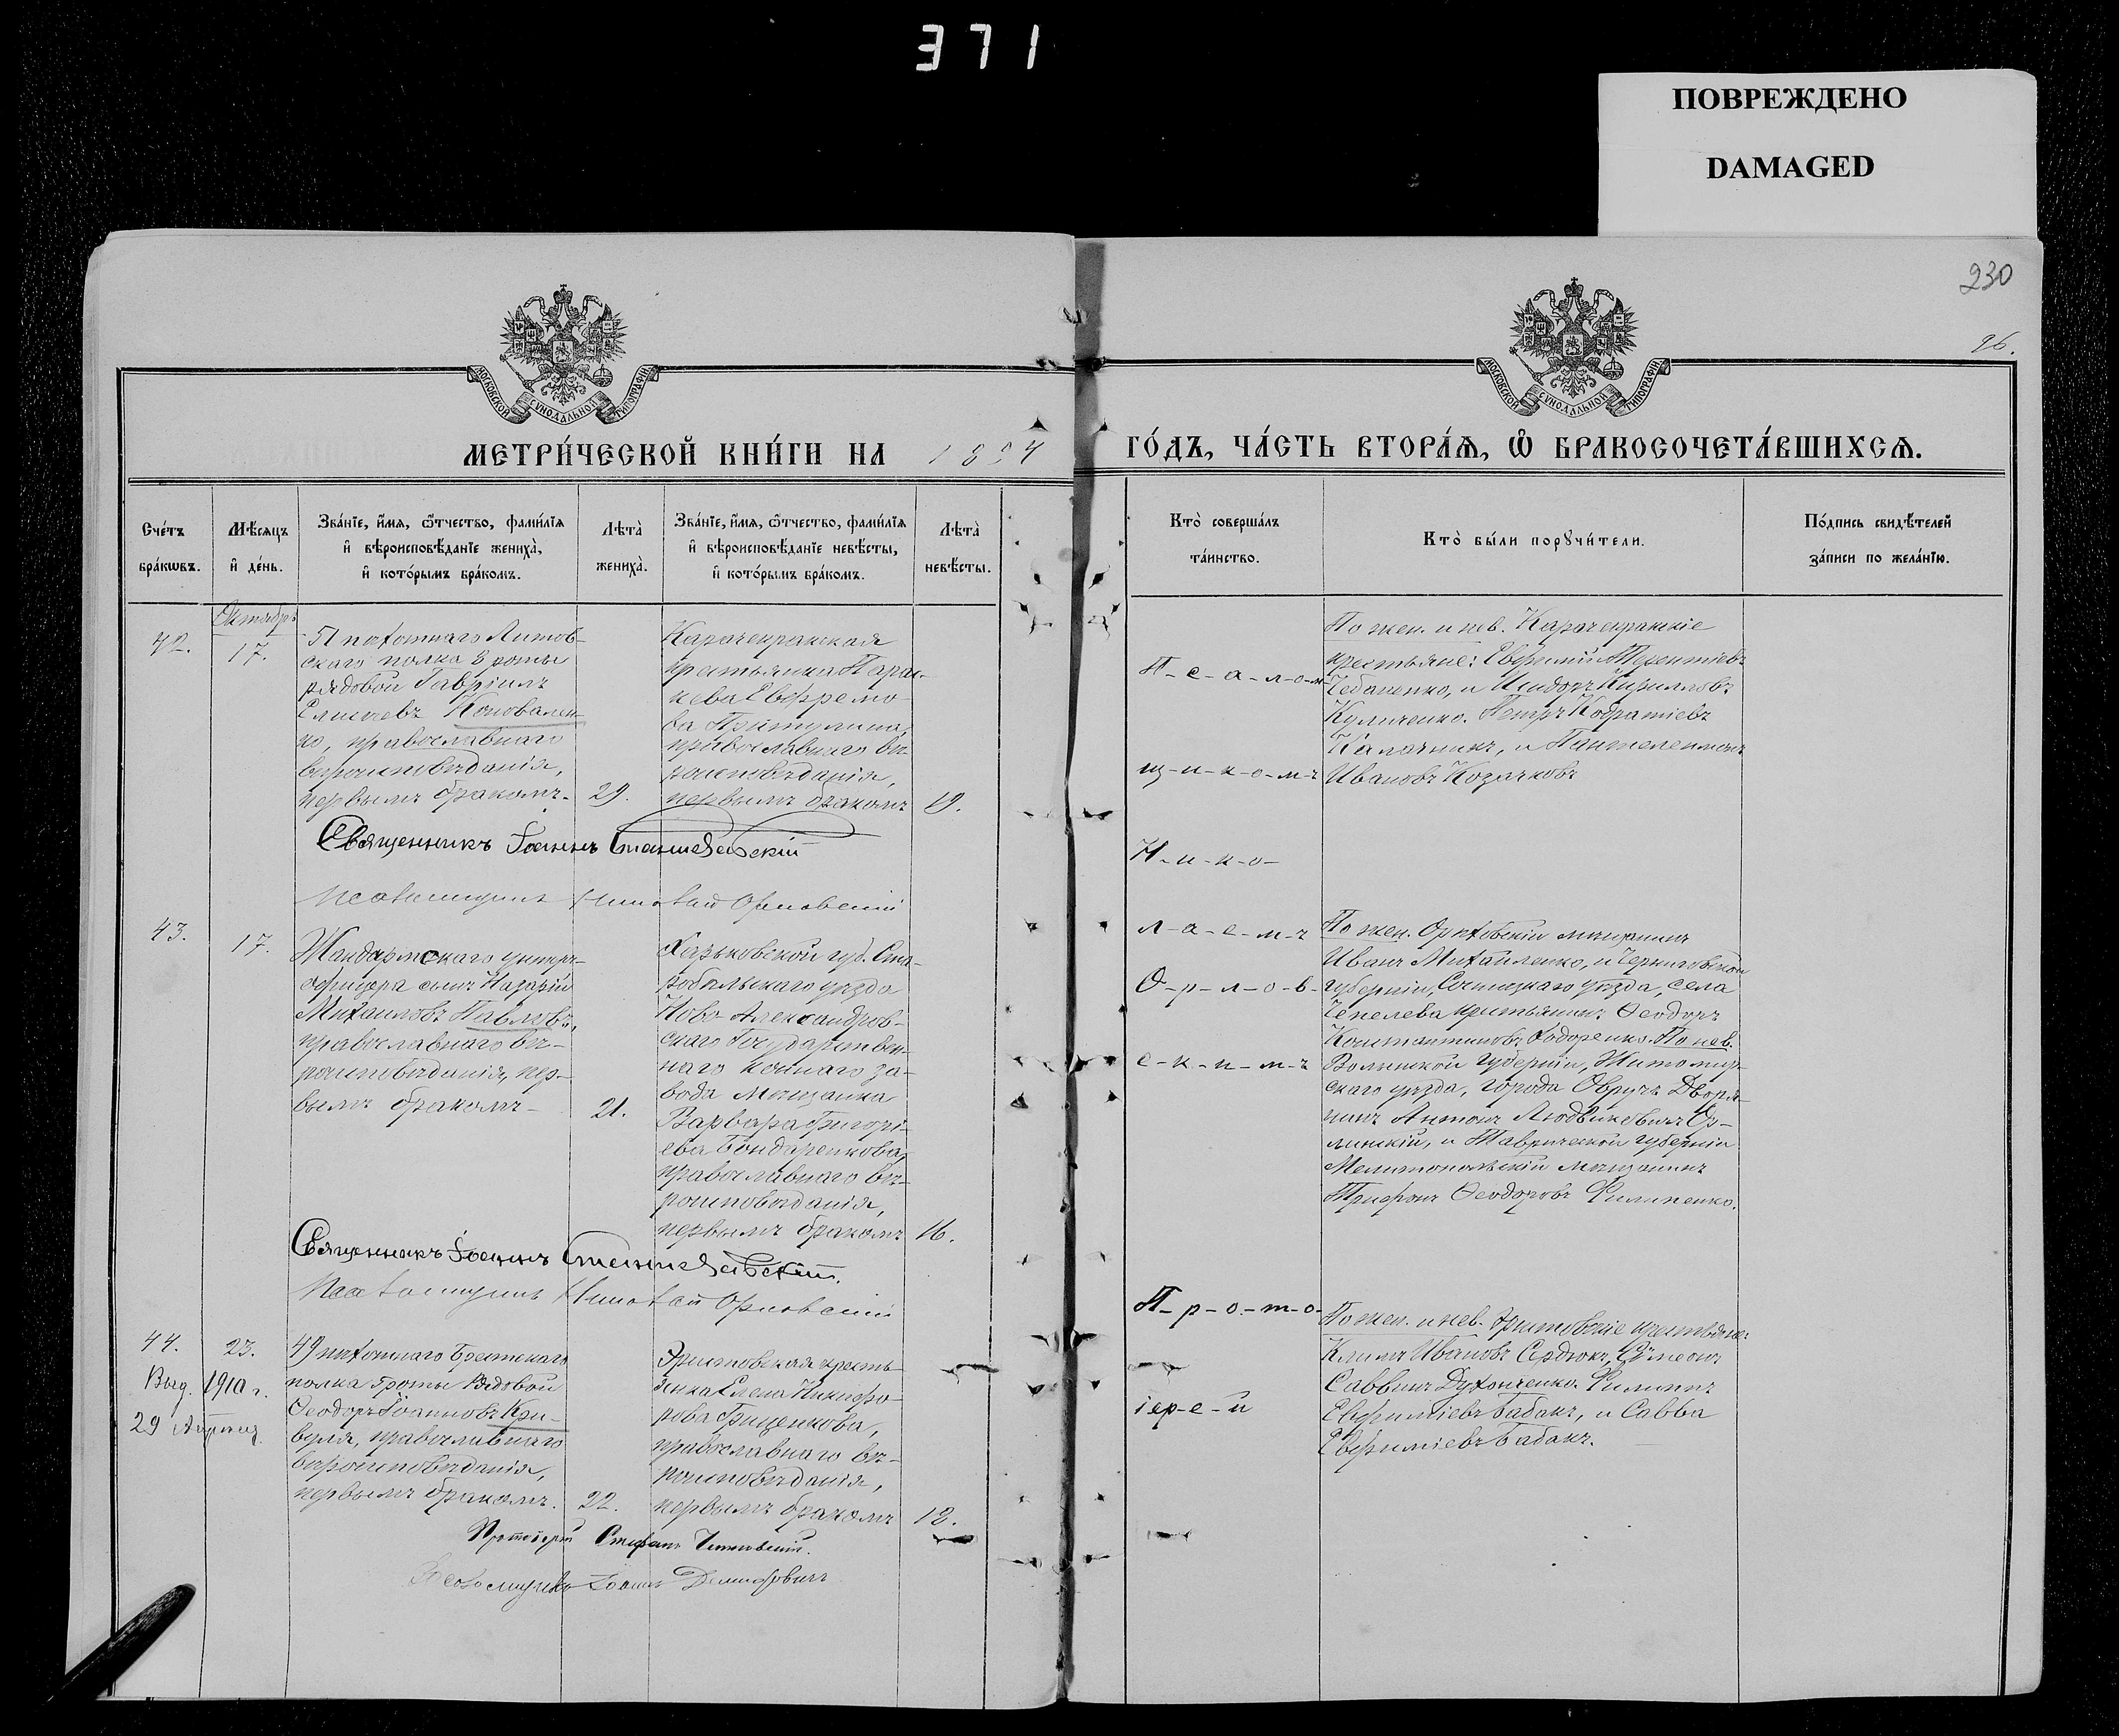 371
ПОВРЕЖДЕНО
DAMAGED
230
96.
МОСКОВСКОЙ СѴНОДАЛЬНОЙ ТИПОГРАФІИ
МОСКОВСКОЙ СѴНОДАЛЬНОЙ ТИПОГРАФІИ
МЕТРИ́ЧЕСКОЙ КНИ́ГИ НА 1894
ГО́ДЪ, ЧА́СТЬ ВТОРА́Ѧ, Ѽ БРАКОСОЧЕТА́ВШИХСѦ.
Сче́тъ
бра́кѡвъ.
Мѣ́сяцъ
и҆ де́нь.
Зва́нїе, и҆́мѧ, ѻ҆́тчество, фами́лїѧ
и҆ вѣроисповѣ́данїе жениха̀,
и҆ кото́рымъ бра́комъ.
Лѣта̀
жениха̀.
Зва́нїе, и҆́мѧ, ѻ҆́тчество, фами́лїѧ
и҆ вѣроисповѣ́данїе невѣ́сты,
и҆ кото́рымъ бра́комъ.
Лѣта̀
невѣ́сты.
Кто̀ соверша́лъ
та́инство.
Кто̀ бы́ли порꙋчи́тели.
По́дпись свидѣ́телей
за́писи по жела́нїю.
Октябрь
42.
17.
51 пѣхотнаго Литов-
скаго полка 8 роты
рядовой Гавріилъ
Елисѣевъ Коновален-
ко, православнаго
вѣроисповѣданія,
первымъ бракомъ.
29.
Карачекракская
крестьянка Парас-
кева Евфремо-
ва
православнаго вѣ-
роисповѣданія,
первымъ бракомъ
19.
П-с-а-л-о-м-
щ-и-к-о-м-ъ
Н-и-к-о-
л-а-е-м-ъ
О-р-л-о-в-
с-к-и-м-ъ
По жен. и нев. Карачекракскіе
крестьяне: Евфимій Терентіевъ
Чебаненко, и Исидоръ Кирилловъ
Куличенко. Петръ Кодратіевъ
Калачникъ, и Пантелеимонъ
Ивановъ Козачковъ
Священникъ Іоаннъ Станиславскій
Псаломщикъ Николай Орловскій
43.
17.
Жандармскаго унтеръ-
офицера сынъ Назарій
Михаиловъ Павловъ,
православнаго вѣ-
роисповѣданія, пер-
вымъ бракомъ
21.
Харьковской губ. Ста-
робѣльскаго уѣзда
Ново-Александров-
скаго Государствен-
наго коннаго за-
вода мѣщанка
Варвара Григорі-
ева Бондаренкова,
православнаго вѣ-
роисповѣданія,
первымъ бракомъ
16.
По жен. Орѣховскій мѣщанинъ
Иванъ Михайленко, и Черниговской
губерніи, Сосницкаго уѣзда, села
Чепелева крестьянинъ Ѳеодоръ
Константиновъ Ходоренко. По нев.
Волынской губерніи, Житомир-
скаго уѣзда, города Овручъ Дворя-
нинъ Антонъ Людвиковичъ Ор-
линскій, и Таврической губерніи
Мелитопольскій мѣщанинъ
Трифонъ Ѳеодоровъ Филипенко.
Священникъ Іоаннъ Станиславскій.
Псаломщикъ Николай Орловскій
44.
23.
Выд. 1910 г.
29 Августа
49 пѣхотнаго Брестскаго
полка роты Рядовой
Ѳеодоръ Іоанновъ Кри-
вуля, православнаго
вѣроисповѣданія,
первымъ бракомъ.
22.
Эристовская кресть-
янка Елена Никифо-
рова Гриценкова,
православнаго вѣ-
роисповѣданія,
первымъ бракомъ
18.
П-р-о-т-о-
іер-е-й
По жен. и нев. Эристовскіе крестьяне:
Климъ Ивановъ Сердюкъ, Сѵмеонъ
Саввинъ Духонченко. Филиппъ
Евфиміевъ Бабакъ, и Савва
Евфиміевъ Бабакъ.
Протоіерей Стефанъ
Псаломщикъ Іоаннъ